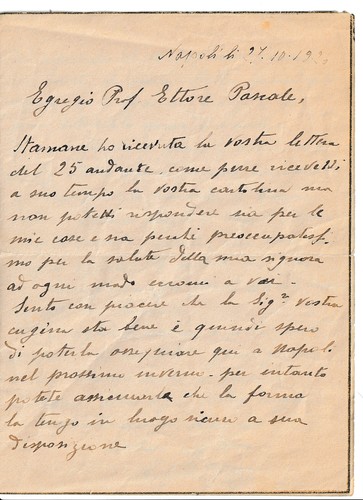 Napoli li 27.10.19
Egregio Prof Ettore Pascale,
Stamane ho ricevuta la vostra lettera
del 25 andante, come pure ricevetti
a suo tempo la vostra cartolina ma
non potetti rispondere sia per le
mie cose e sia perché preoccupatiss/
mo per la salute della mia signora
ad ogni modo eccomi a voi.
Sento con piacere che la Sigra vostra
cugina sta bene e quindi spero
di poterla ossequiare qui a Napoli
nel prossimo inverno. per intanto
potete assicurarla che la forma
la tengo in luogo sicuro a sua
disposizione